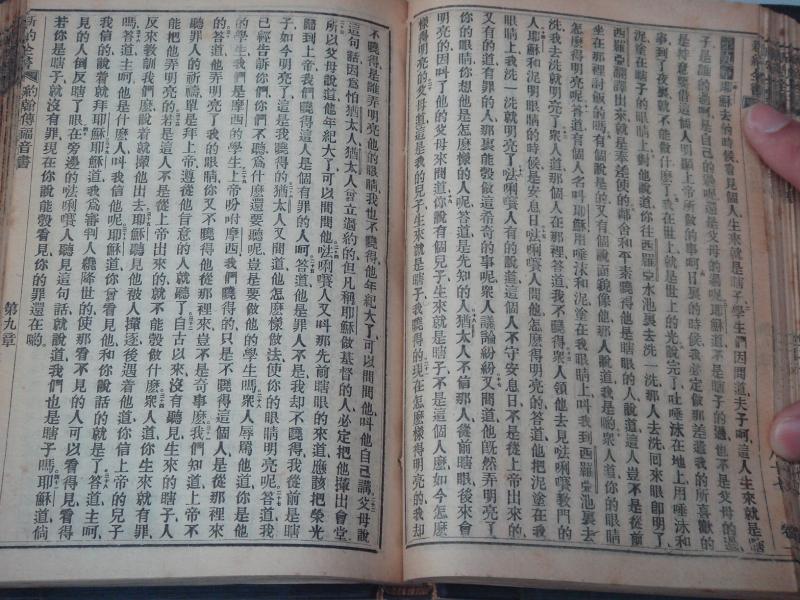 耶穌去的時候、看見個人生來就是瞎子、學生們因問道、夫子呵、這人生來就是瞎
子、是誰的
是自己的
還是父母的
呢、耶穌道、不是瞎子的
也不是父母的
是特意要借這人明顯上帝所做的事呵、日裏的時候、我必定做那差遣我的所喜歡的
事、到了夜裏就不能做什麽了、我在世上、就是世上的光、說完了、吐唾沫在地上、用唾沫和
泥、塗在瞎子的眼睛上、對他說道、你往西羅亞水池裏去洗一洗、那人去洗、回來眼卽明了、
西羅亞翻譯出來就是奉差使的、鄰舍和平素曉得他是瞎眼的人說道、這人豈不是從前
坐在那裡討飯的嗎、有個說是的、又有個說面貌像他、那人說道、我就是的、衆人問道、你的眼睛
怎麽得明亮呢、答道、有個人名叫耶穌、用唾沫和泥、塗在我眼睛上、叫我到西羅亞池裏去
洗、我去洗就明亮了、衆人道、那個人在那裡、答道、我不曉得、衆人領他去見法唎㘔敎門的
人、耶穌和泥明眼睛的時候、是安息日、法唎㘔人問他怎樣得明亮的、答道、他把泥塗在我
眼睛上、我洗一洗就明亮了、法唎㘔人有的說道、這個人不守安息日、不是從上帝來的、
又有的道、有罪的人、那裏能彀做這希奇的事呢、衆人議論紛紛、又問道、他旣然弄明亮了
你的眼睛、你想他是怎麽樣的人呢、答道、是先知的人、猶太人不信那人從前瞎眼、後來會
明亮的、因叫了他的父母來問道、你說有個兒子、生來就是瞎子、不是這個人麽、如今怎麽
樣得明亮的、父母道、這是我的兒子、生來就是瞎子、我曉得的、現在怎麽樣得明亮的、我却
不曉得、是誰弄明亮他的眼睛、我也不曉得、他年紀大了、可以問問他、叫他自己講、父母說
這句話、因爲怕猶太人、猶太人曾立過約的、但凡稱耶穌做基督的人、必定把他攆出會堂、
所以父母說道、他年紀大了、可以問問他、法唎㘔人又叫那先前瞎眼的來道、應該把榮光
歸到上帝、我們曉得這人是個有罪的人、答道、他是罪人不是、我却不曉得、我從前是瞎
子、如今明亮了、這是我曉得的、猶太人又問道、他怎麽樣做法、使你的眼睛明亮呢、答道、我
已經告訴你們、你們不聽、爲什麽還要聽呢、豈是要做他的學生嗎、衆人辱罵他道、你是他
的學生、我們是摩西的學生、上帝吩咐摩西、我們曉得的、只是不曉得這個人是從那裡來
的、答道、他弄明亮了我的眼睛、你又不曉得他從那裡來、豈不是奇事麽、我們知道上帝不
聽罪人的祈禱、單是拜上帝、遵從他旨意的人、就聽了、自古以來、沒有聽見生來的瞎子、人
能把他弄明亮的、若是這人不是從上帝出來的、就不能彀做什麽、衆人道、你生來就有罪、
反來教訓我們麽、說着就攆他出去、耶穌聽見他被人攆逐、後遇着他道、你信上帝的兒子
嗎、答道、主呵、他是什麽人、叫我信他呢、耶穌道、你曾看見他、和你說話的就是了、答道、主呵、
我信的、說着就拜耶穌、耶穌道、我爲審判人纔降世的、使那看不見的人可以看得見、看得
見的人倒反瞎了眼、在旁邊的法唎㘔人聽見這句話、就說道、我們也是瞎子嗎、耶穌道、倘
若你是瞎子、就沒有罪、現在你說能彀看見、你的罪還在喲、
新約全書 約翰傳福音書 第九章